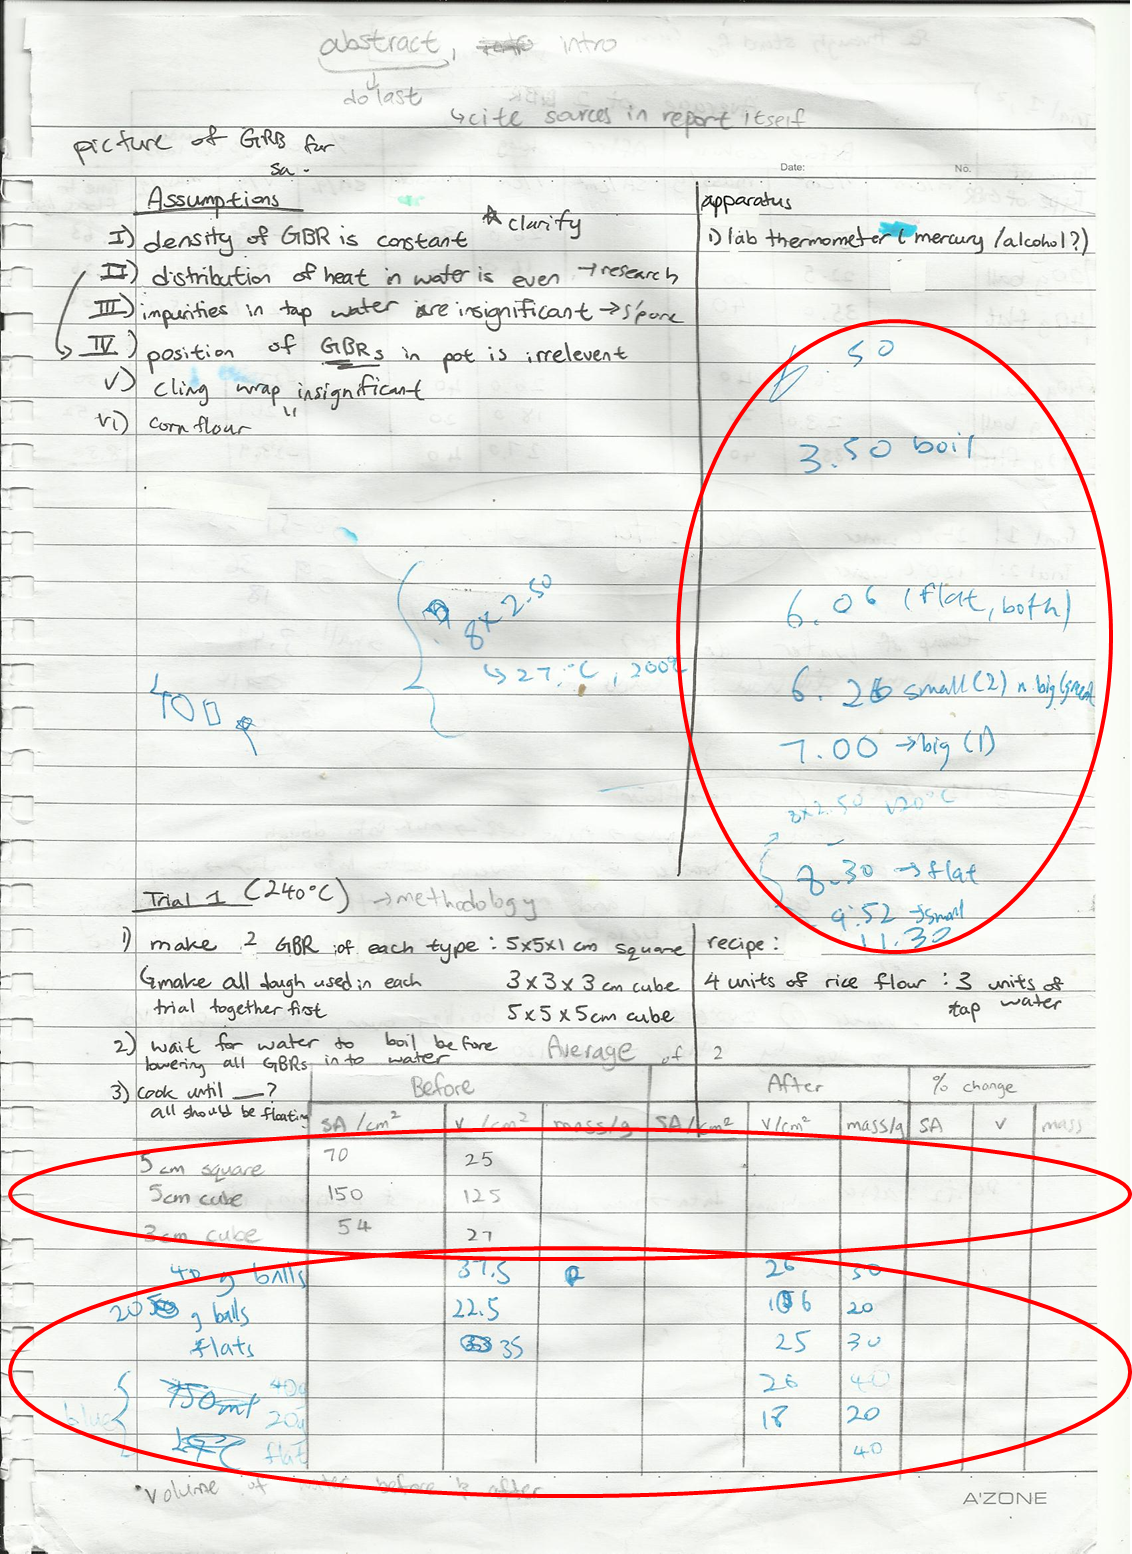 abstract, intro
do last
↳ cite sources in report itself
picture of GRB for
sa.
Date: No.
Assumptions
☆ clarify
I) density of GBR is constant
II) distribution of heat in water is even → research
III) impurities in tap water are insignificant → s'pore
IV) position of GBRs in pot is irrelevent
V) cling wrap insignificant
vi) corn flour "
apparatus
1) lab thermometer ( mercury / alcohol?)
50
3.50 boil
6.06 (flat, both)
6.26 small (2) n big
7.00 → big (1)
8 x 2.50
↳ 27.°C, 200°C
400
8 x 2.50 ↓20°C
8.30 → flat
9:52 → small
11.30
Trial 1 (240°C) → methodology
1) make 2 GBR of each type: 5x5x1 cm square
↳ make all dough used in each 3 x 3 x 3 cm cube
trial together first 5 x 5 x 5 cm cube
recipe:
4 units of rice flour : 3 units of
tap water
2) wait for water to boil before
lowering all GBRs into water
Average of 2
3) cook until __?
all should be floating
Before After % change
SA/cm² V/cm² mass/g SA/cm² V/cm² mass/g SA V mass
5cm square 70 25
5cm cube 150 125
3cm cube 54 27
40 g balls 37.5 26 50
20 g balls 22.5 16 20
flats 35 25 30
blue 40g 26 40
20g 18 20
flat 40
*volume of water before & after
A'ZONE